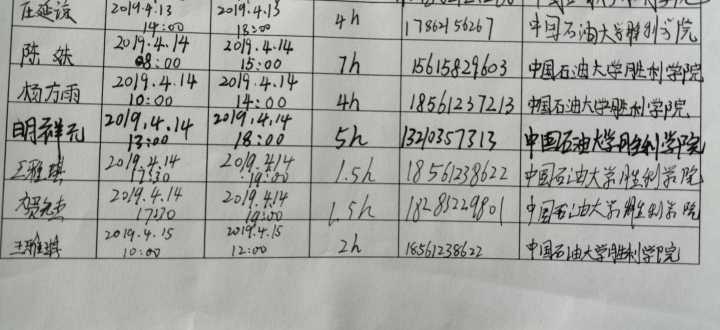 2019.4.13 2019.4.13 4h 17862156267 中国石油大学胜利学院
14:00 18:00
陈 2019.4.14 2019.4.14 7h 15615829603 中国石油大学胜利学院
08:00 15:00
杨方雨 2019.4.14 2019.4.14 4h 18561237213 中国石油大学胜利学院
10:00 14:00
明祥元 2019.4.14 2019.4.14 5h 13210357313 中国石油大学胜利学院
13:00 18:00
王雅琪 2019.4.14 2019.4.14 1.5h 18561238622 中国石油大学胜利学院
17:30 19:00
2019.4.14 2019.4.14 1.5h 18285229801 中国石油大学胜利学院
17:30 19:00
王雅琪 2019.4.15 2019.4.15 2h 18561238622 中国石油大学胜利学院
10:00 12:00